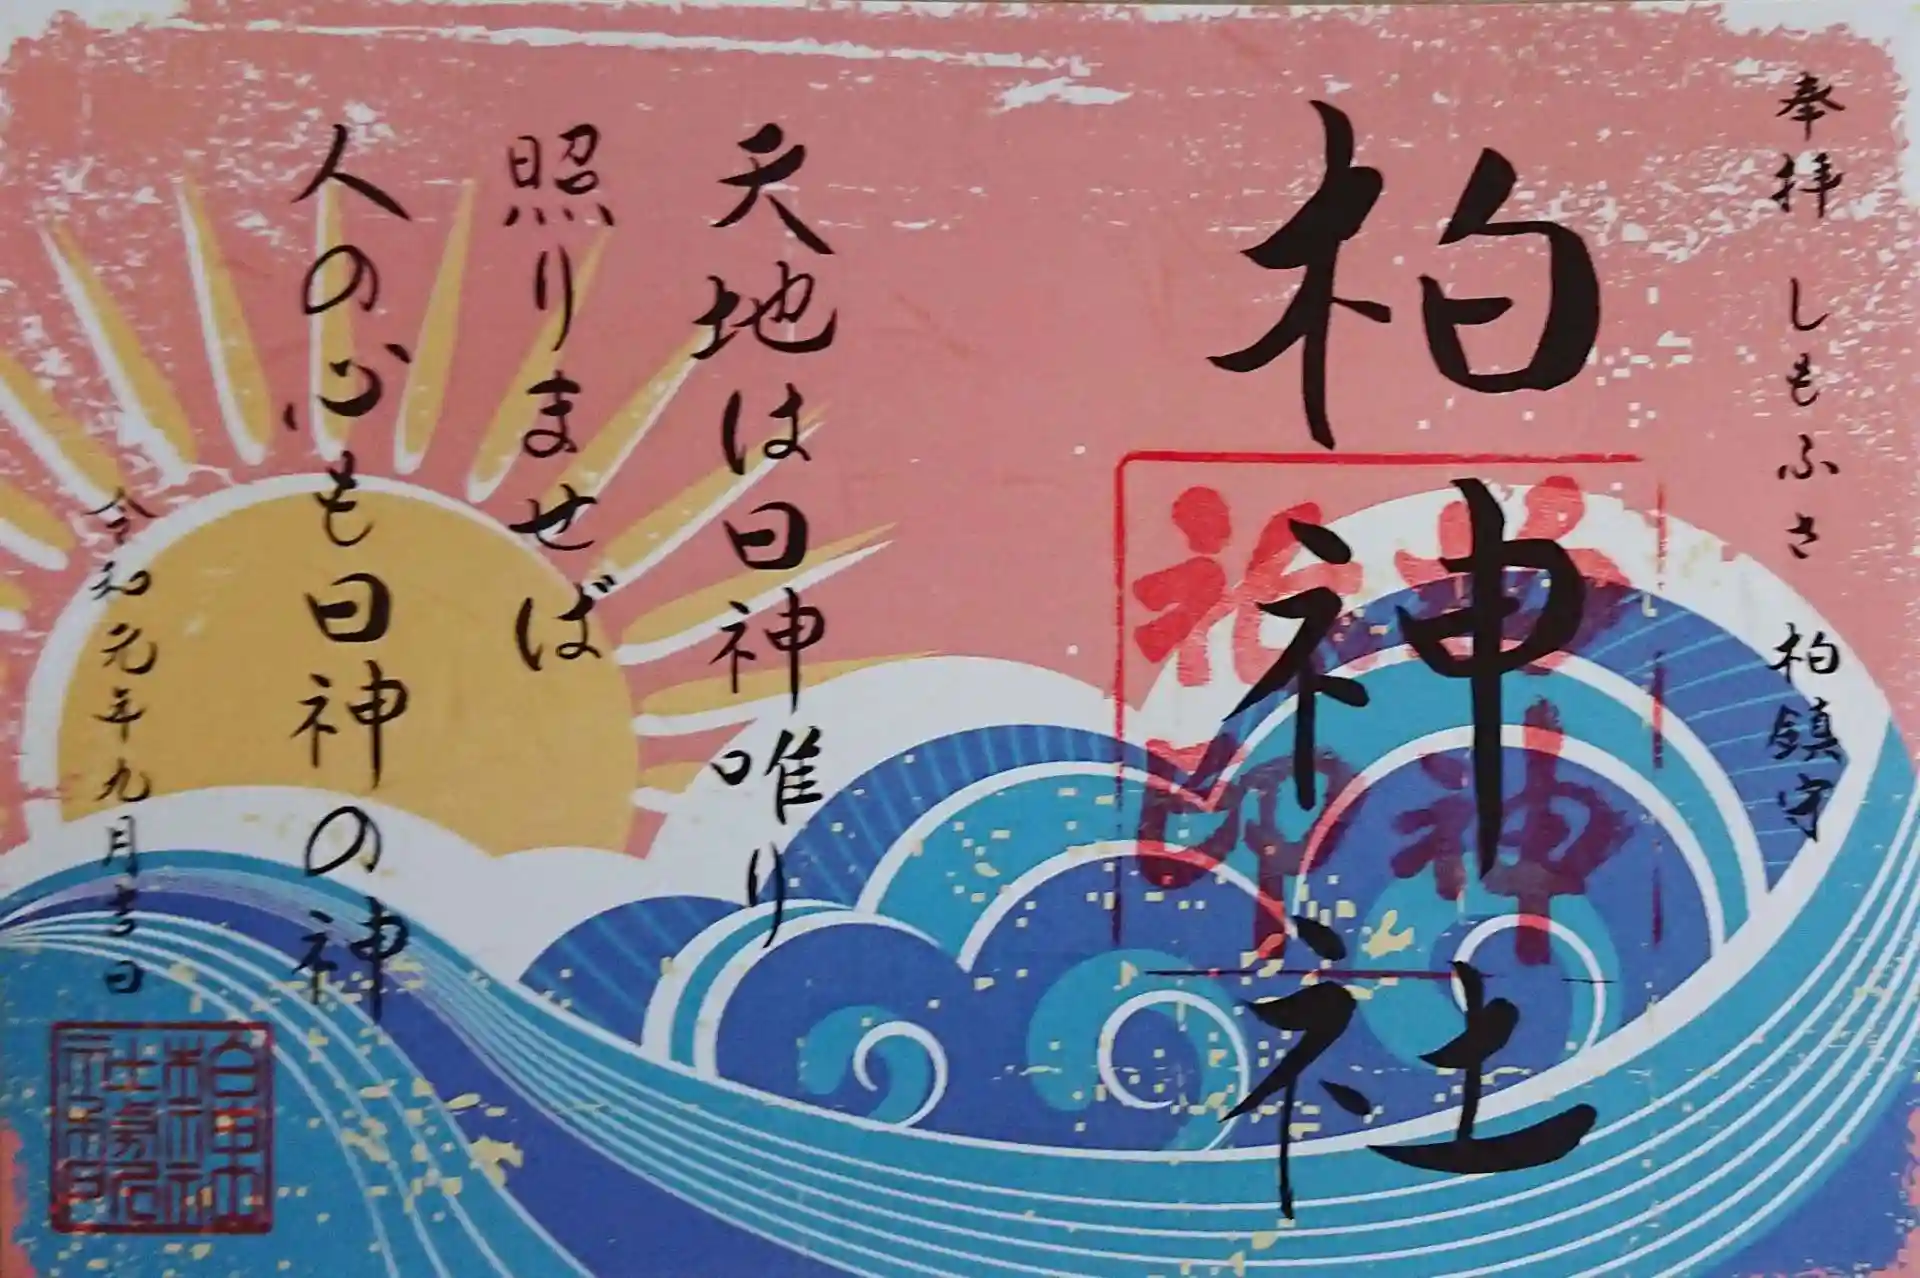 奉拝 しもふさ 柏鎮守
柏神社
天地は日神唯り
照りませば
人の心も日神の神
令和元年九月吉日
柏神社
社務所